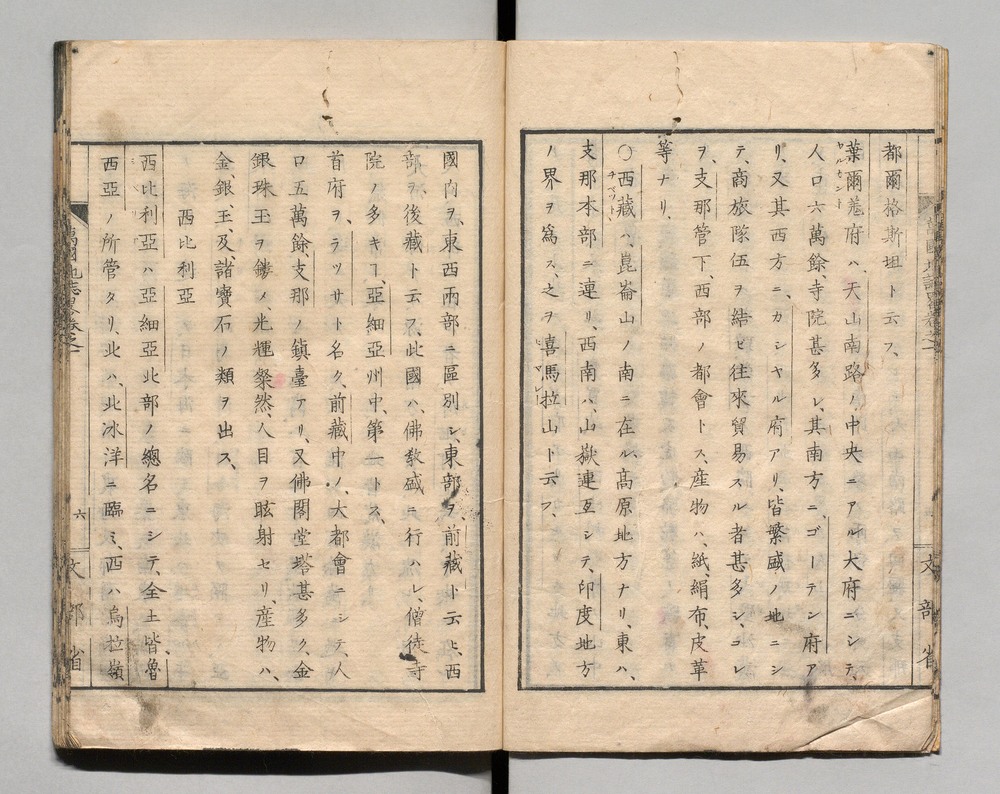 都爾格斯坦ト云フ、
葉爾羗府ハ、天山南路ノ中央ニアル大府ニシテ、
人口六萬餘、寺院甚多シ、其南方ニ、ゴーテン府ア
リ、又其西方ニ、カシヤル府アリ、皆繁盛ノ地ニシ
テ、商旅隊伍ヲ結ビ往來貿易スル者甚多シ、コレ
ヲ、支那管下、西部ノ都會トス、産物ハ、紙、絹布、皮革
等ナリ、
○西藏ハ、崑崙山ノ南ニ在ル髙原地方ナリ、東ハ、
支那本部ニ連リ、西南ハ、山嶽連亙シテ、印度地方
ノ界ヲ爲ス、之ヲ喜馬拉山ト云フ、
國内ヲ、東西兩部ニ區別シ、東部ヲ前藏ト云ヒ西
部ヲ後藏ト云フ、此國ハ、佛敎盛ニ行ハレ、僧徒寺
院ノ多キヿ、亞細亞州中、第一トス、
首府ヲ、ラツサト名ク、前藏中ノ、大都會ニシテ、人
口五萬餘、支那ノ鎮臺アリ、又佛閣堂塔甚多ク、金
銀珠玉ヲ鏤メ、光輝粲然、人目ヲ眩射セリ、産物ハ、
金、銀、玉、及、諸寶石ノ類ヲ出ス、
西比利亞
西比利亞ハ亞細亞北部ノ總名ニシテ、全土皆魯
西亞ノ所管タリ、北ハ、北冰洋ニ臨ミ、西ハ烏拉嶺
六
文部省